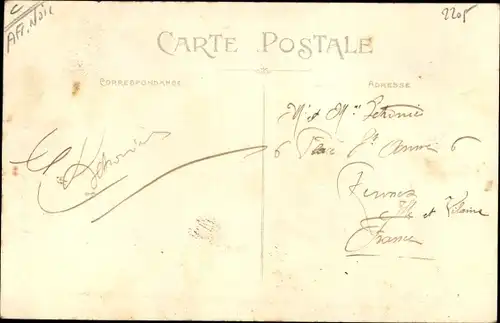 Afr. Noire
2205
CARTE POSTALE
CORRESPONDANCE
ADRESSE
Mr et Mme
6 Place Ste Anne 6
Rennes
Ille et Vilaine
France